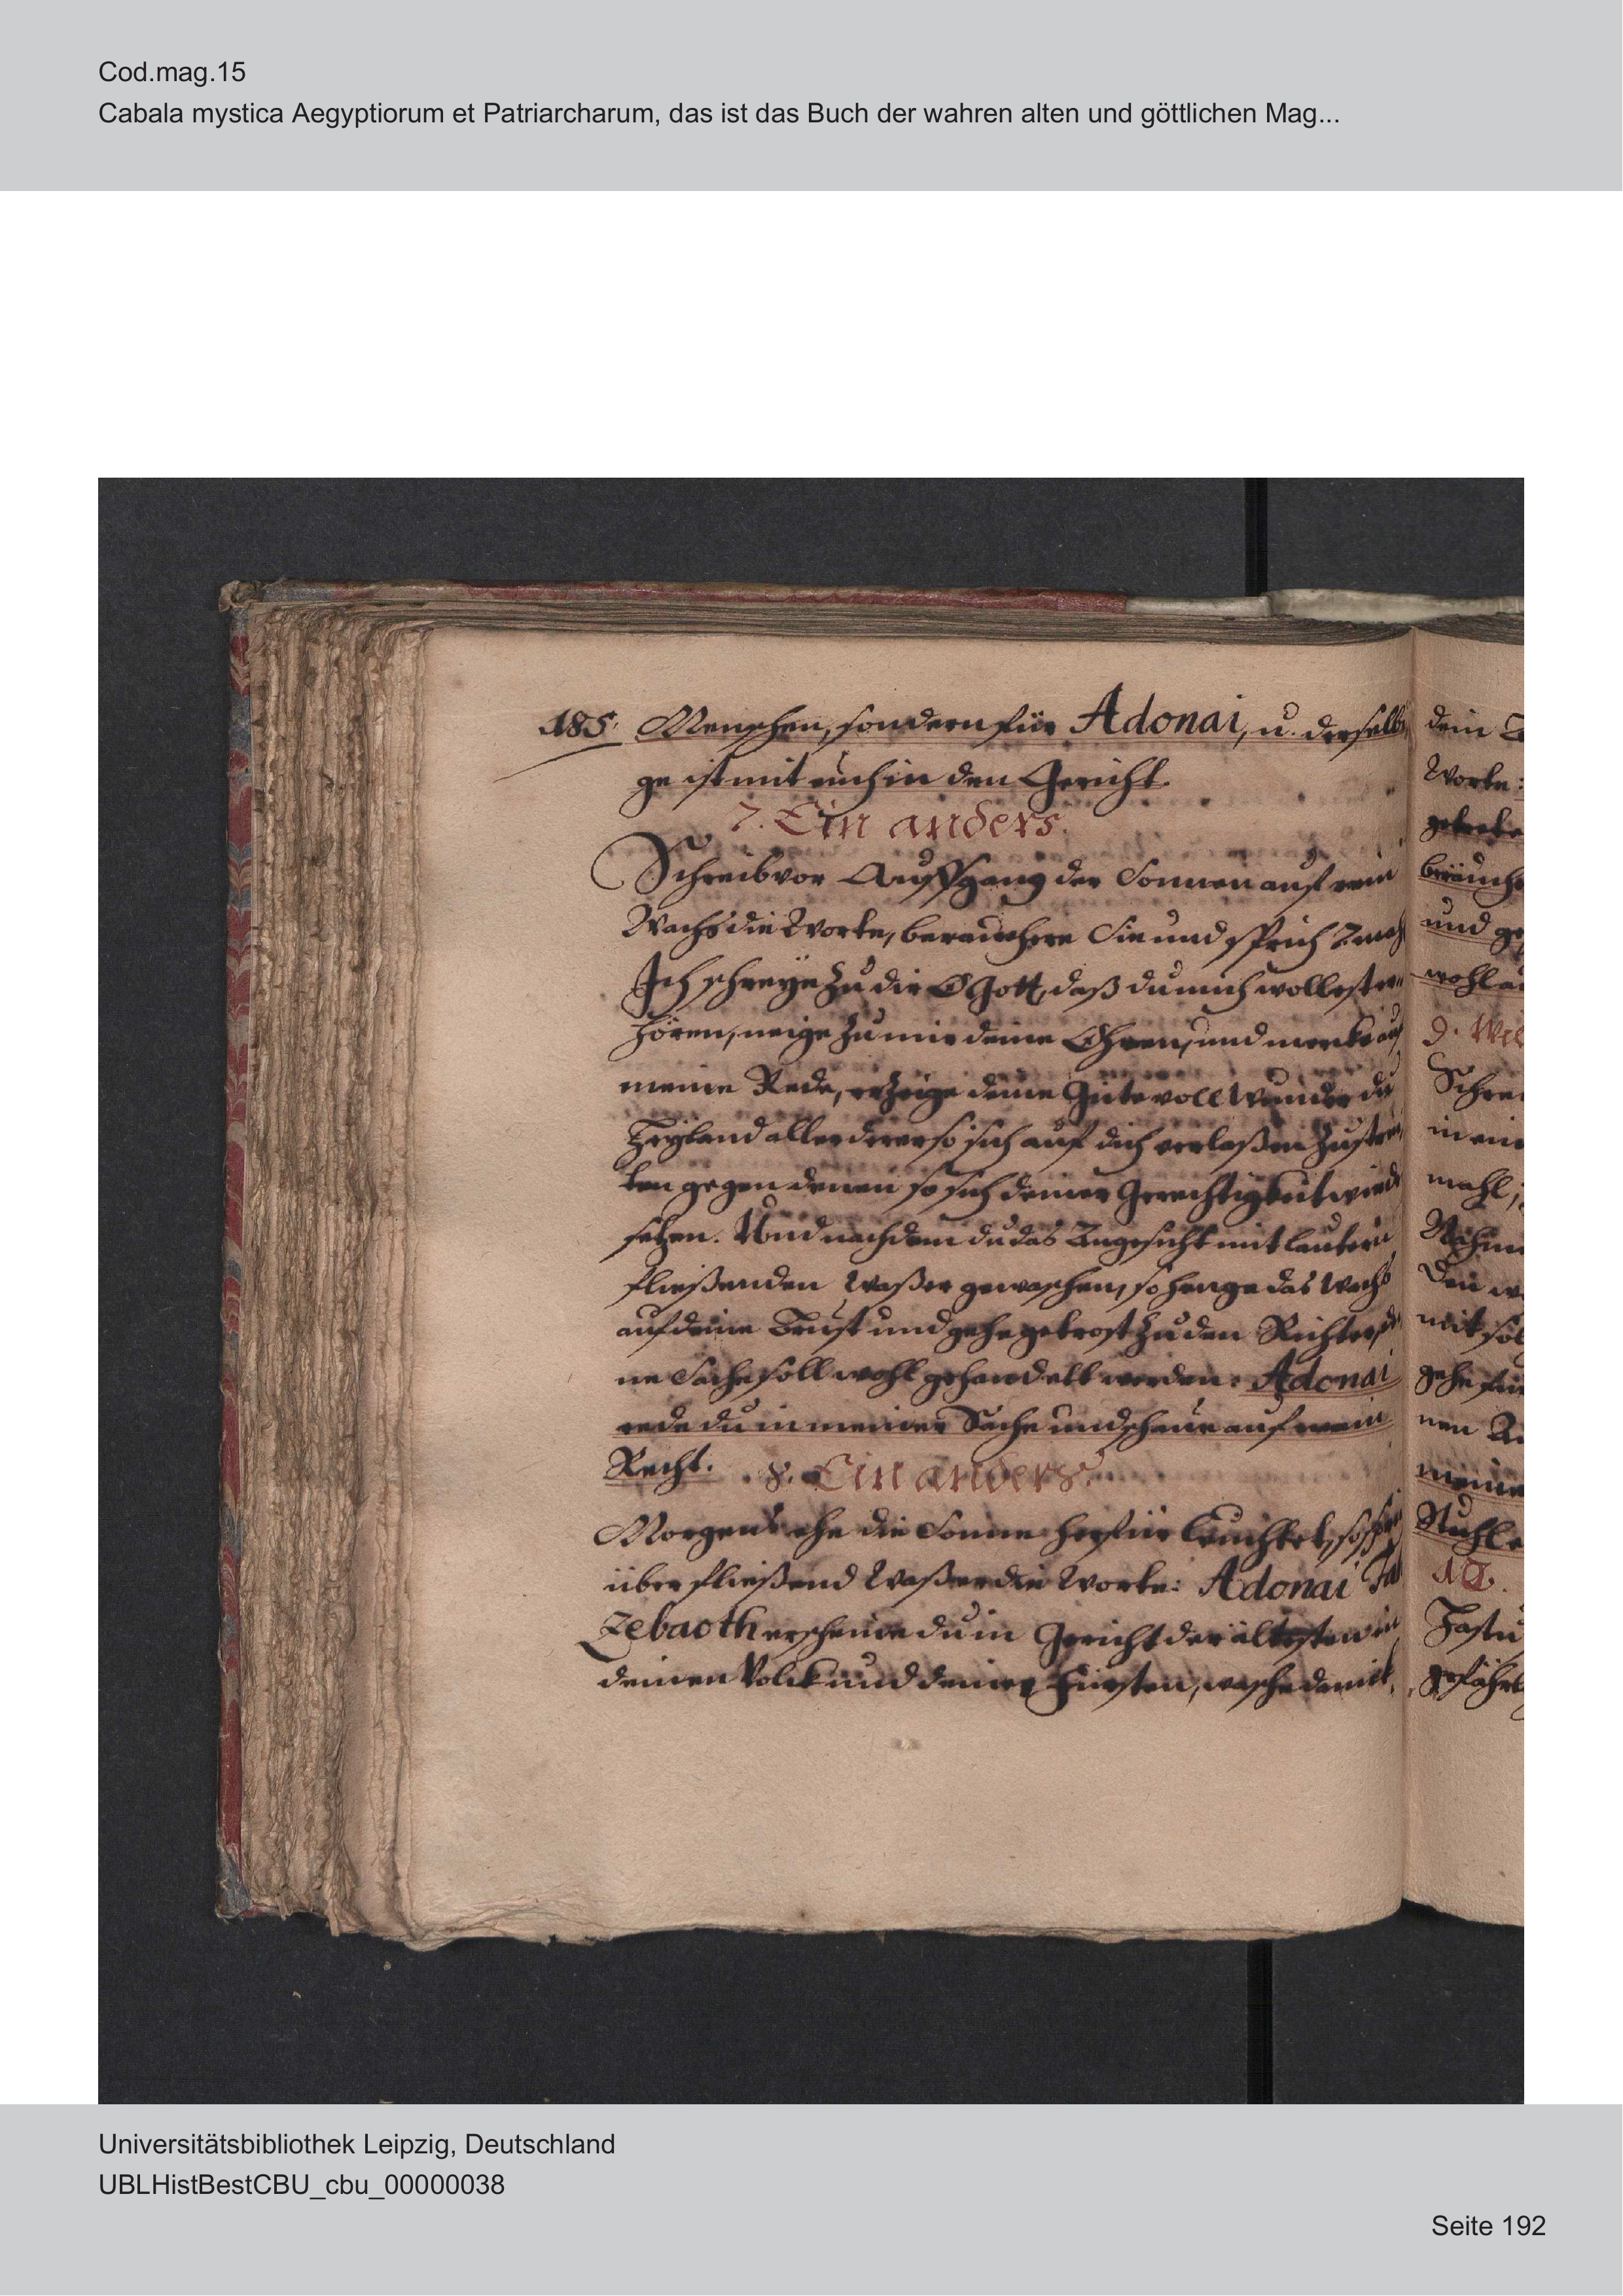 Cod.mag.15
Cabala mystica Aegyptiorum et Patriarcharum, das ist das Buch der wahren alten und göttlichen Mag...
185. Menschen, sondern für Adonai, u. derselbi
ge ist mit euch in den Gericht.
7. Ein anders.
Schreib vor Auffgang der Sonnen auf rein
Wachs die Worte, beräuchere Sie und sprich 7 mahl
Ich schreye zu dir O Gott, daß du mich wollest er
hören, neige zu mir deine Ohren, und merke auf
meine Rede, erzeige deine Güte voll Wunder du
Heyland aller derer so sich auf dich verlaßen zustrei
ten gegen denen so sich deiner Gerechtigkeit wieder
setzen. Und nachdem du das Angesicht mit lautern
fließenden Waßer gewaschen, so henge das Wachs
auf deine Brust und gehe getrost zu den Richter, dei
ne Sache soll wohl gehandelt werden. Adonai
rede du in meiner Sache und schaue auf mein
Recht. 8. Ein anders.
Morgens ehe die Sonne herfür leuchtet, so sprich
über fließend Waßer die Worte: Adonai
Zebaoth erscheine du in Gericht der ältesten in
deinen Volck und deiner Fürsten, wasche damit
dein
Worte:
und
9.
Schrei
in ein
mahl;
mit
meine
Stuhle
10.
Universitätsbibliothek Leipzig, Deutschland
UBLHistBestCBU_cbu_00000038
Seite 192